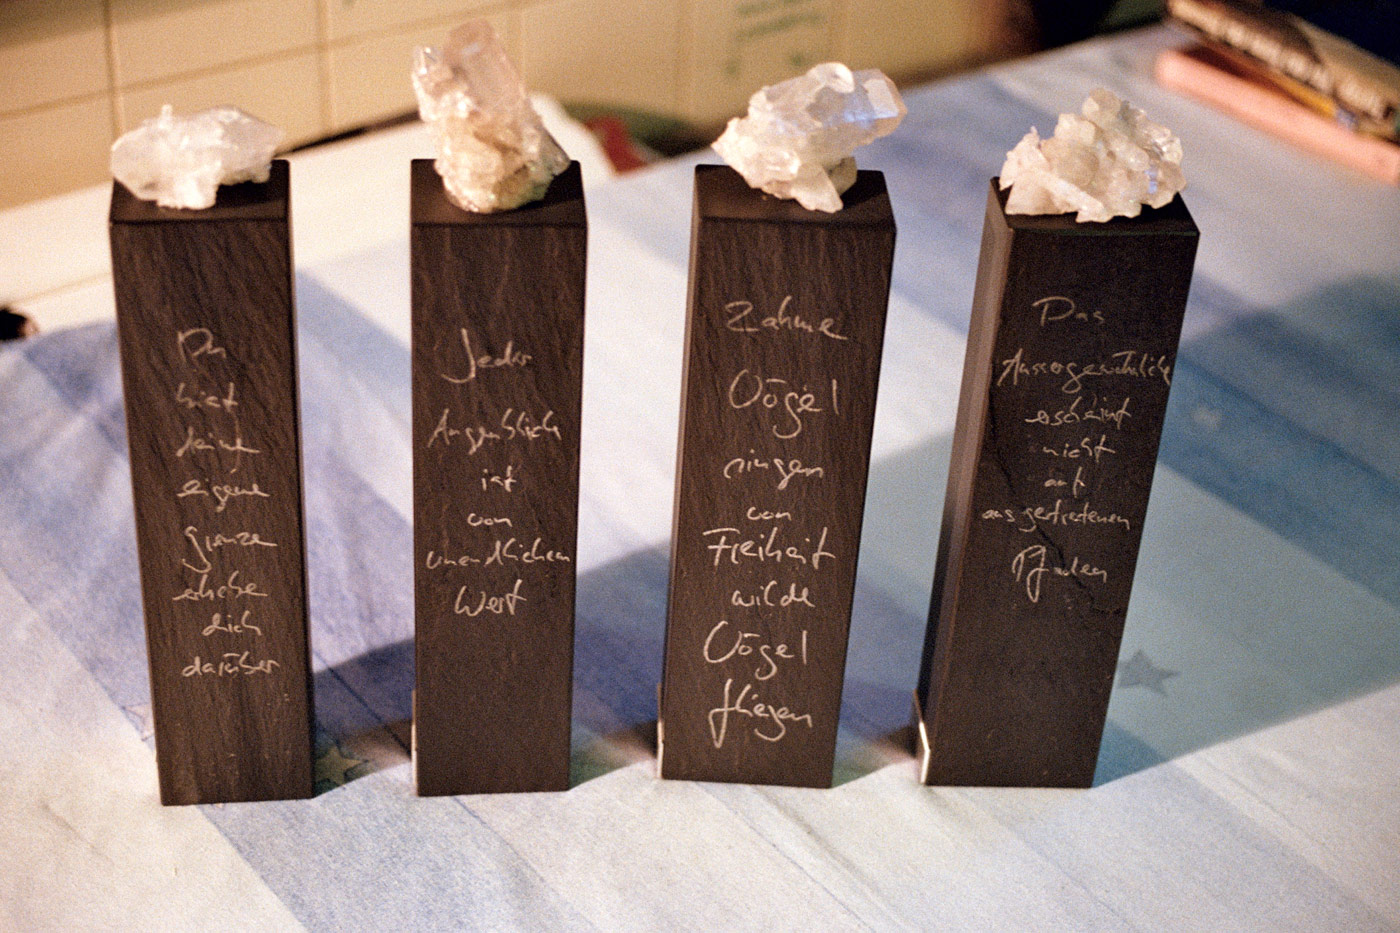 Du
bist
deine
eigene
grenze
erhebe
dich
darüber
Jeder
Augenblick
ist
von
unendlichem
Wert
Zahme
Vögel
singen
von
Freiheit
wilde
Vögel
fliegen
Das
Aussergewöhnliche
erscheint
nicht
auf
ausgetretenen
Pfaden